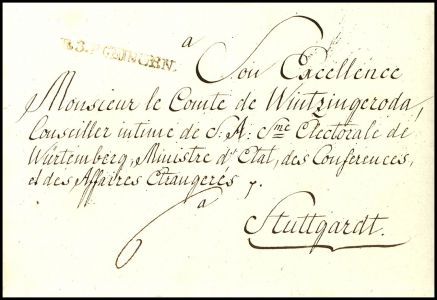 a
Son Excellence
Monsieur le Comte de Wintzingeroda,
Conseiller intime de S: A: Sme Electorale de
Würtemberg, Ministre d'Etat, des Conferences,
et des Affaires Etrangeres
a
Stuttgardt.